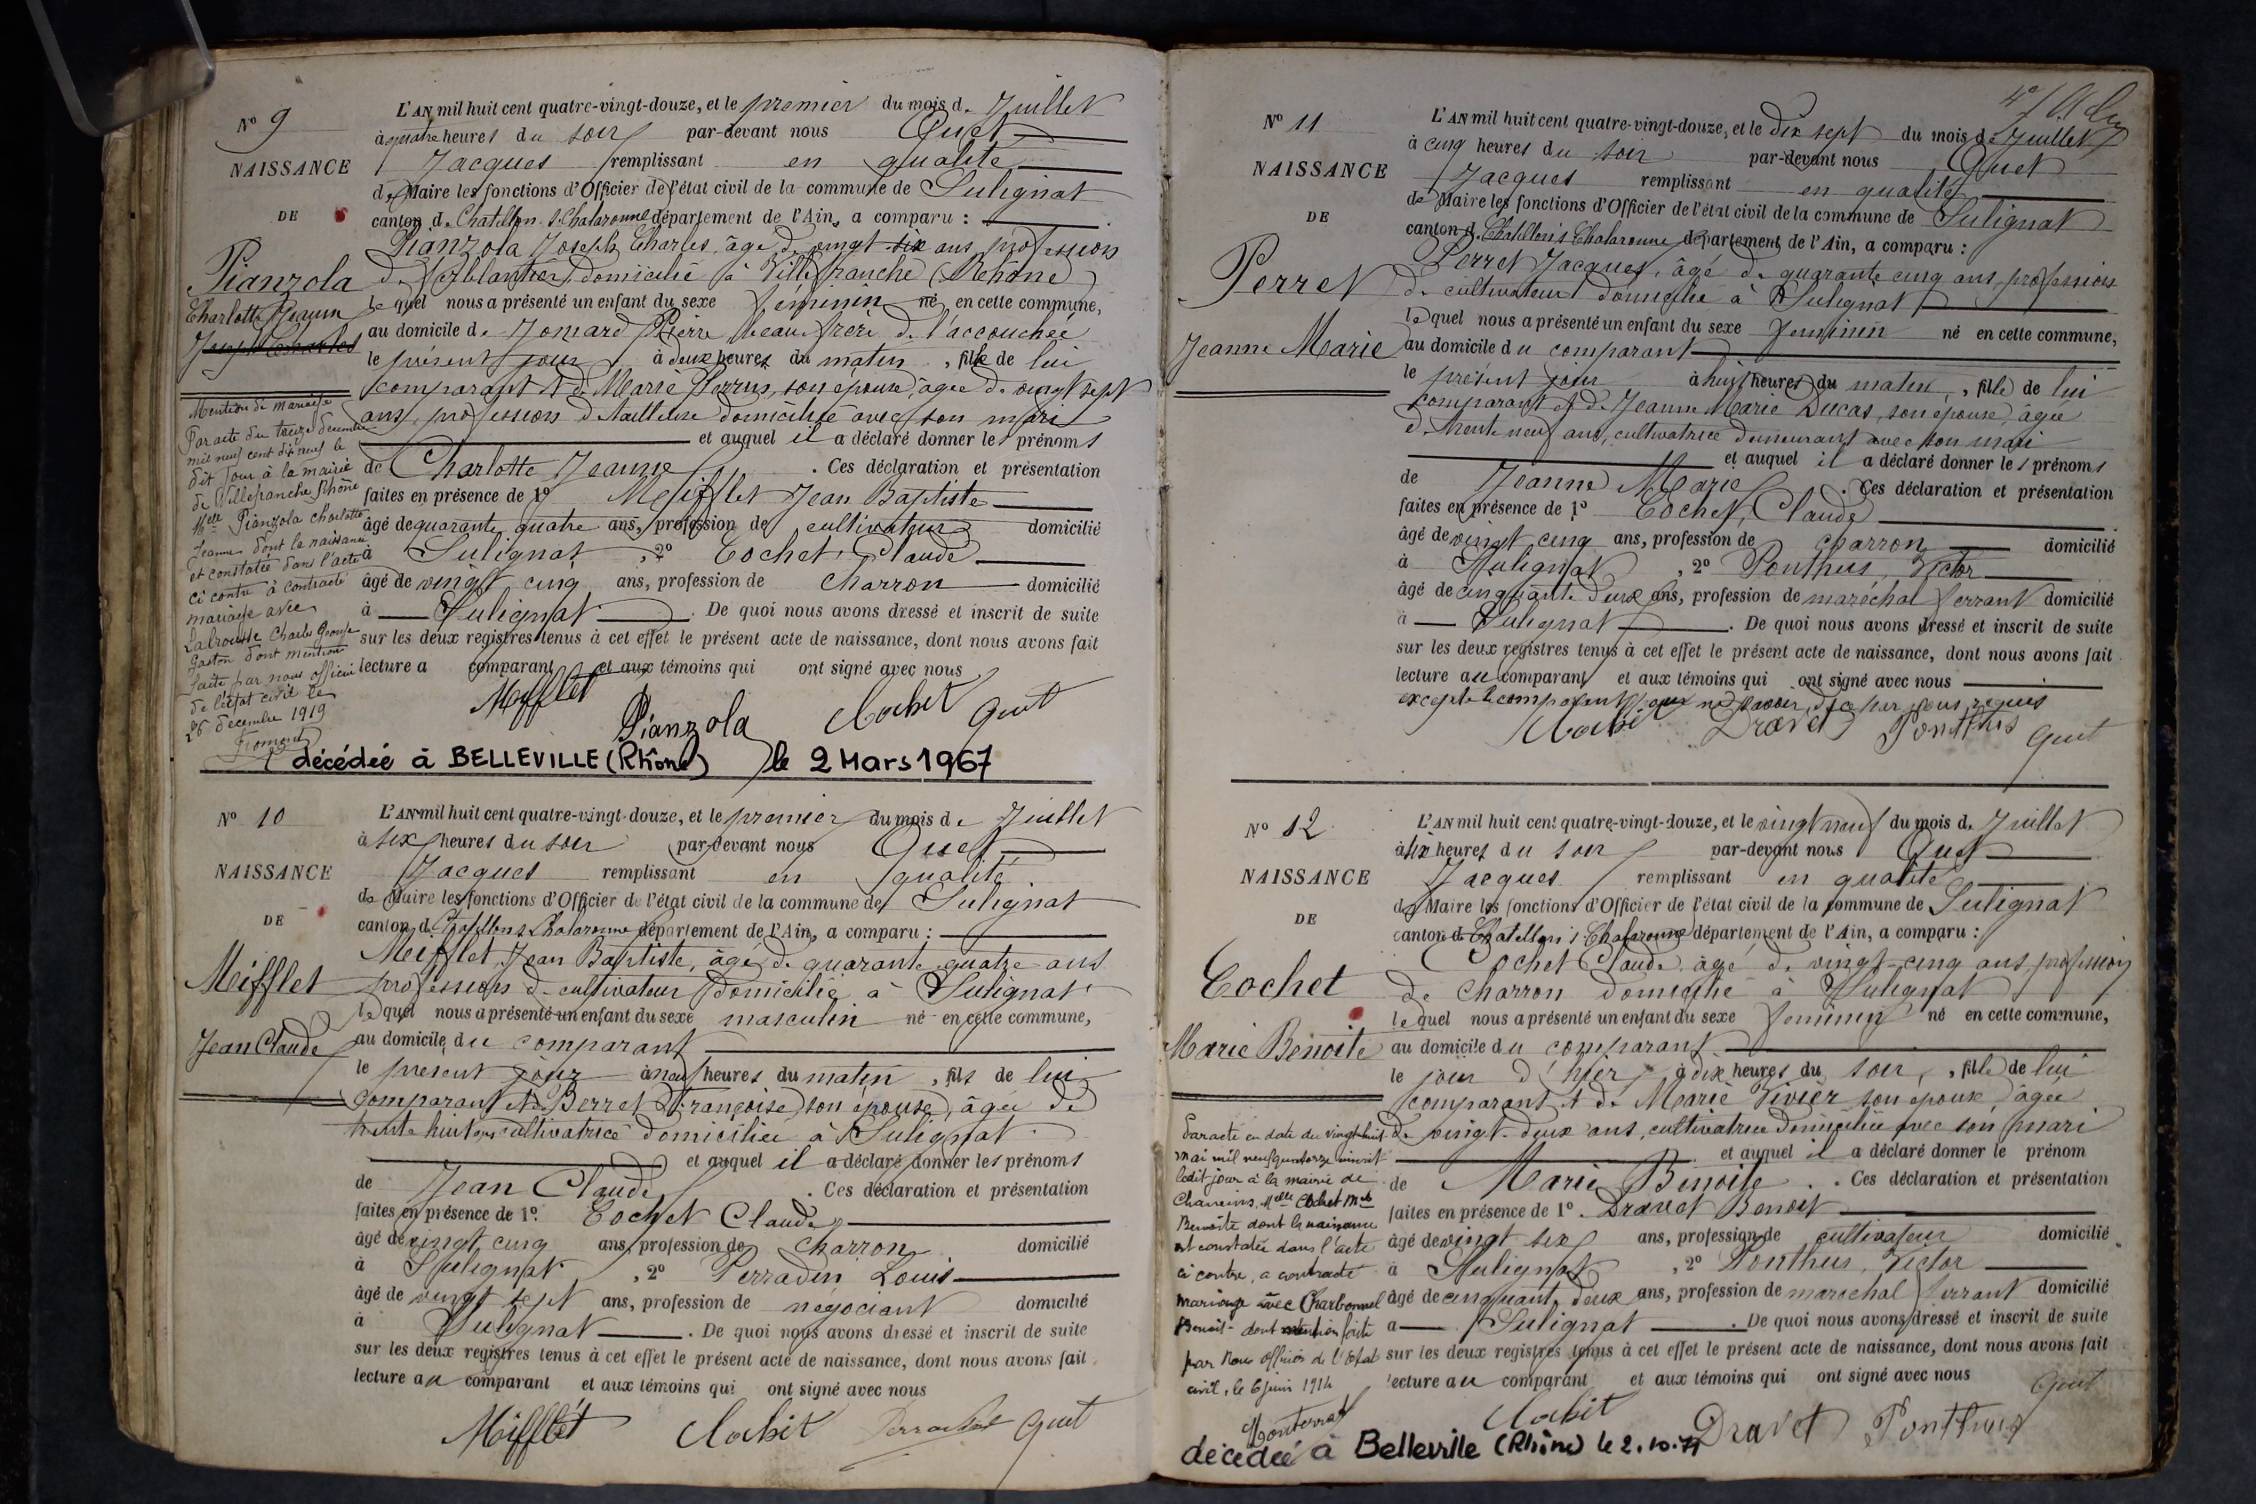 Nº 9
NAISSANCE
DE
Pianzola
Charlotte Jeanne
Joseph Charles
L'AN mil huit cent quatre-vingt-douze, et le premier du mois de Juillet
à quatre heures du soir par-devant nous Quet
Jacques remplissant en qualité
de Maire les fonctions d'Officier de l'état civil de la commune de Sulignat
canton de Chatillon s. Chalaronne département de l'Ain, a comparu :
Pianzola Joseph Charles, âgé de vingt six ans, profession
de ferblantier, domicilié à Villefranche (Rhône)
lequel nous a présenté un enfant du sexe féminin né en cette commune,
au domicile de Jomard Pierre beau frère de l'accouchée
le présent jour à deux heures du matin, fille de lui
comparant et de Marie Perrus, son épouse, âgée de vingt sept
ans, profession de tailleuse domiciliée avec son mari
et auquel il a déclaré donner les prénoms
de Charlotte Jeanne. Ces déclaration et présentation
faites en présence de 1º Mifflet Jean Baptiste
âgé de quarante quatre ans, profession de cultivateur domicilié
à Sulignat, 2º Cochet Claude
âgé de vingt cinq ans, profession de charron domicilié
à Sulignat. De quoi nous avons dressé et inscrit de suite
sur les deux registres tenus à cet effet le présent acte de naissance, dont nous avons fait
lecture a comparant et aux témoins qui ont signé avec nous
Mifflet
Pianzola Cochet Quet
Mention de mariage
Par acte du treize décembre
mil neuf cent dix neuf le
dit jour à la mairie
de Villefranche Rhône
Melle Pianzola Charlotte
Jeanne dont la naissance
et constatée dans l'acte
ci contre à contracté
mariage avec
Labrousse Charles George
Gaston dont mention
faite par nous officier
de l'état civil le
26 décembre 1919
décédée à BELLEVILLE (Rhône) le 2 Mars 1967
Nº 10
NAISSANCE
DE
Mifflet
Jean Claude
L'AN mil huit cent quatre-vingt-douze, et le premier du mois de Juillet
à six heures du soir par-devant nous Quet
Jacques remplissant en qualité
de Maire les fonctions d'Officier de l'état civil de la commune de Sulignat
canton de Chatillon s. Chalaronne département de l'Ain, a comparu :
Mifflet Jean Baptiste, âgé de quarante quatre ans
profession de cultivateur domicilié à Sulignat
lequel nous a présenté un enfant du sexe masculin né en cette commune,
au domicile du comparant
le présent jour à neuf heures du matin, fils de lui
comparant et de Berret Françoise son épouse, âgée de
trente huit ans cultivatrice domiciliée à Sulignat
et auquel il a déclaré donner les prénoms
de Jean Claude. Ces déclaration et présentation
faites en présence de 1º. Cochet Claude
âgé de vingt cinq ans, profession de charron domicilié
à Sulignat, 2º Perradin Louis
âgé de vingt sept ans, profession de négociant domicilié
à Sulignat. De quoi nous avons dressé et inscrit de suite
sur les deux registres tenus à cet effet le présent acte de naissance, dont nous avons fait
lecture au comparant et aux témoins qui ont signé avec nous
Mifflet Cochet Perradin Quet
Nº 11
NAISSANCE
DE
Perret
Jeanne Marie
L'AN mil huit cent quatre-vingt-douze, et le dix sept du mois de Juillet
à cinq heures du soir par-devant nous Quet
Jacques remplissant en qualité
de Maire les fonctions d'Officier de l'état civil de la commune de Sulignat
canton de Chatillon s Chalaronne département de l'Ain, a comparu :
Perret Jacques, âgé de quarante cinq ans, profession
de cultivateur domicilié à Sulignat
lequel nous a présenté un enfant du sexe féminin né en cette commune,
au domicile du comparant
le présent jour à huit heures du matin, fille de lui
comparant et de Jeanne Marie Ducas, son épouse, âgée
de trente neuf ans, cultivatrice demeurant avec son mari
et auquel il a déclaré donner les prénoms
de Jeanne Marie. Ces déclaration et présentation
faites en présence de 1º Cochet, Claude
âgé de vingt cinq ans, profession de charron domicilié
à Sulignat, 2º Ponthus, Victor
âgé de cinquante deux ans, profession de maréchal ferrant domicilié
à Sulignat. De quoi nous avons dressé et inscrit de suite
sur les deux registres tenus à cet effet le présent acte de naissance, dont nous avons fait
lecture au comparant et aux témoins qui ont signé avec nous
excepté le comparant
Cochet Dravet Ponthus Quet
Nº 12
NAISSANCE
DE
Cochet
Marie Benoite
L'AN mil huit cent quatre-vingt-douze, et le vingt neuf du mois de Juillet
à six heures du soir par-devant nous Quet
Jacques remplissant en qualité
de Maire les fonctions d'Officier de l'état civil de la commune de Sulignat
canton de Chatillon s. Chalaronne département de l'Ain, a comparu :
Cochet Claude, âgé de vingt-cinq ans, profession
de charron domicilié à Sulignat
lequel nous a présenté un enfant du sexe féminin né en cette commune,
au domicile du comparant
le jour d'hier à dix heures du soir, fille de lui
comparant et de Marie Vivier son épouse, âgée
de vingt-deux ans, cultivatrice domiciliée avec son mari
et auquel il a déclaré donner le prénom
de Marie Benoite. Ces déclaration et présentation
faites en présence de 1º. Dravet Benoit
âgé de vingt six ans, profession de cultivateur domicilié
à Sulignat, 2º Ponthus, Victor
âgé de cinquante deux ans, profession de maréchal ferrant domicilié
à Sulignat. De quoi nous avons dressé et inscrit de suite
sur les deux registres tenus à cet effet le présent acte de naissance, dont nous avons fait
lecture au comparant et aux témoins qui ont signé avec nous
Quet
Cochet Dravet Ponthus
Par acte en date du vingt huit
mai mil neuf quatorze inscrit
ledit jour à la mairie de
Chaneins, Melle Cochet Mie
Benoite dont la naissance
est constatée dans l'acte
ci contre, a contracté
mariage avec Charbonnel
Benoit - dont mention faite
par nous officier de l'Etat
civil, le 6 juin 1914
Monterrat
décédée à Belleville (Rhône) le 2.10.71